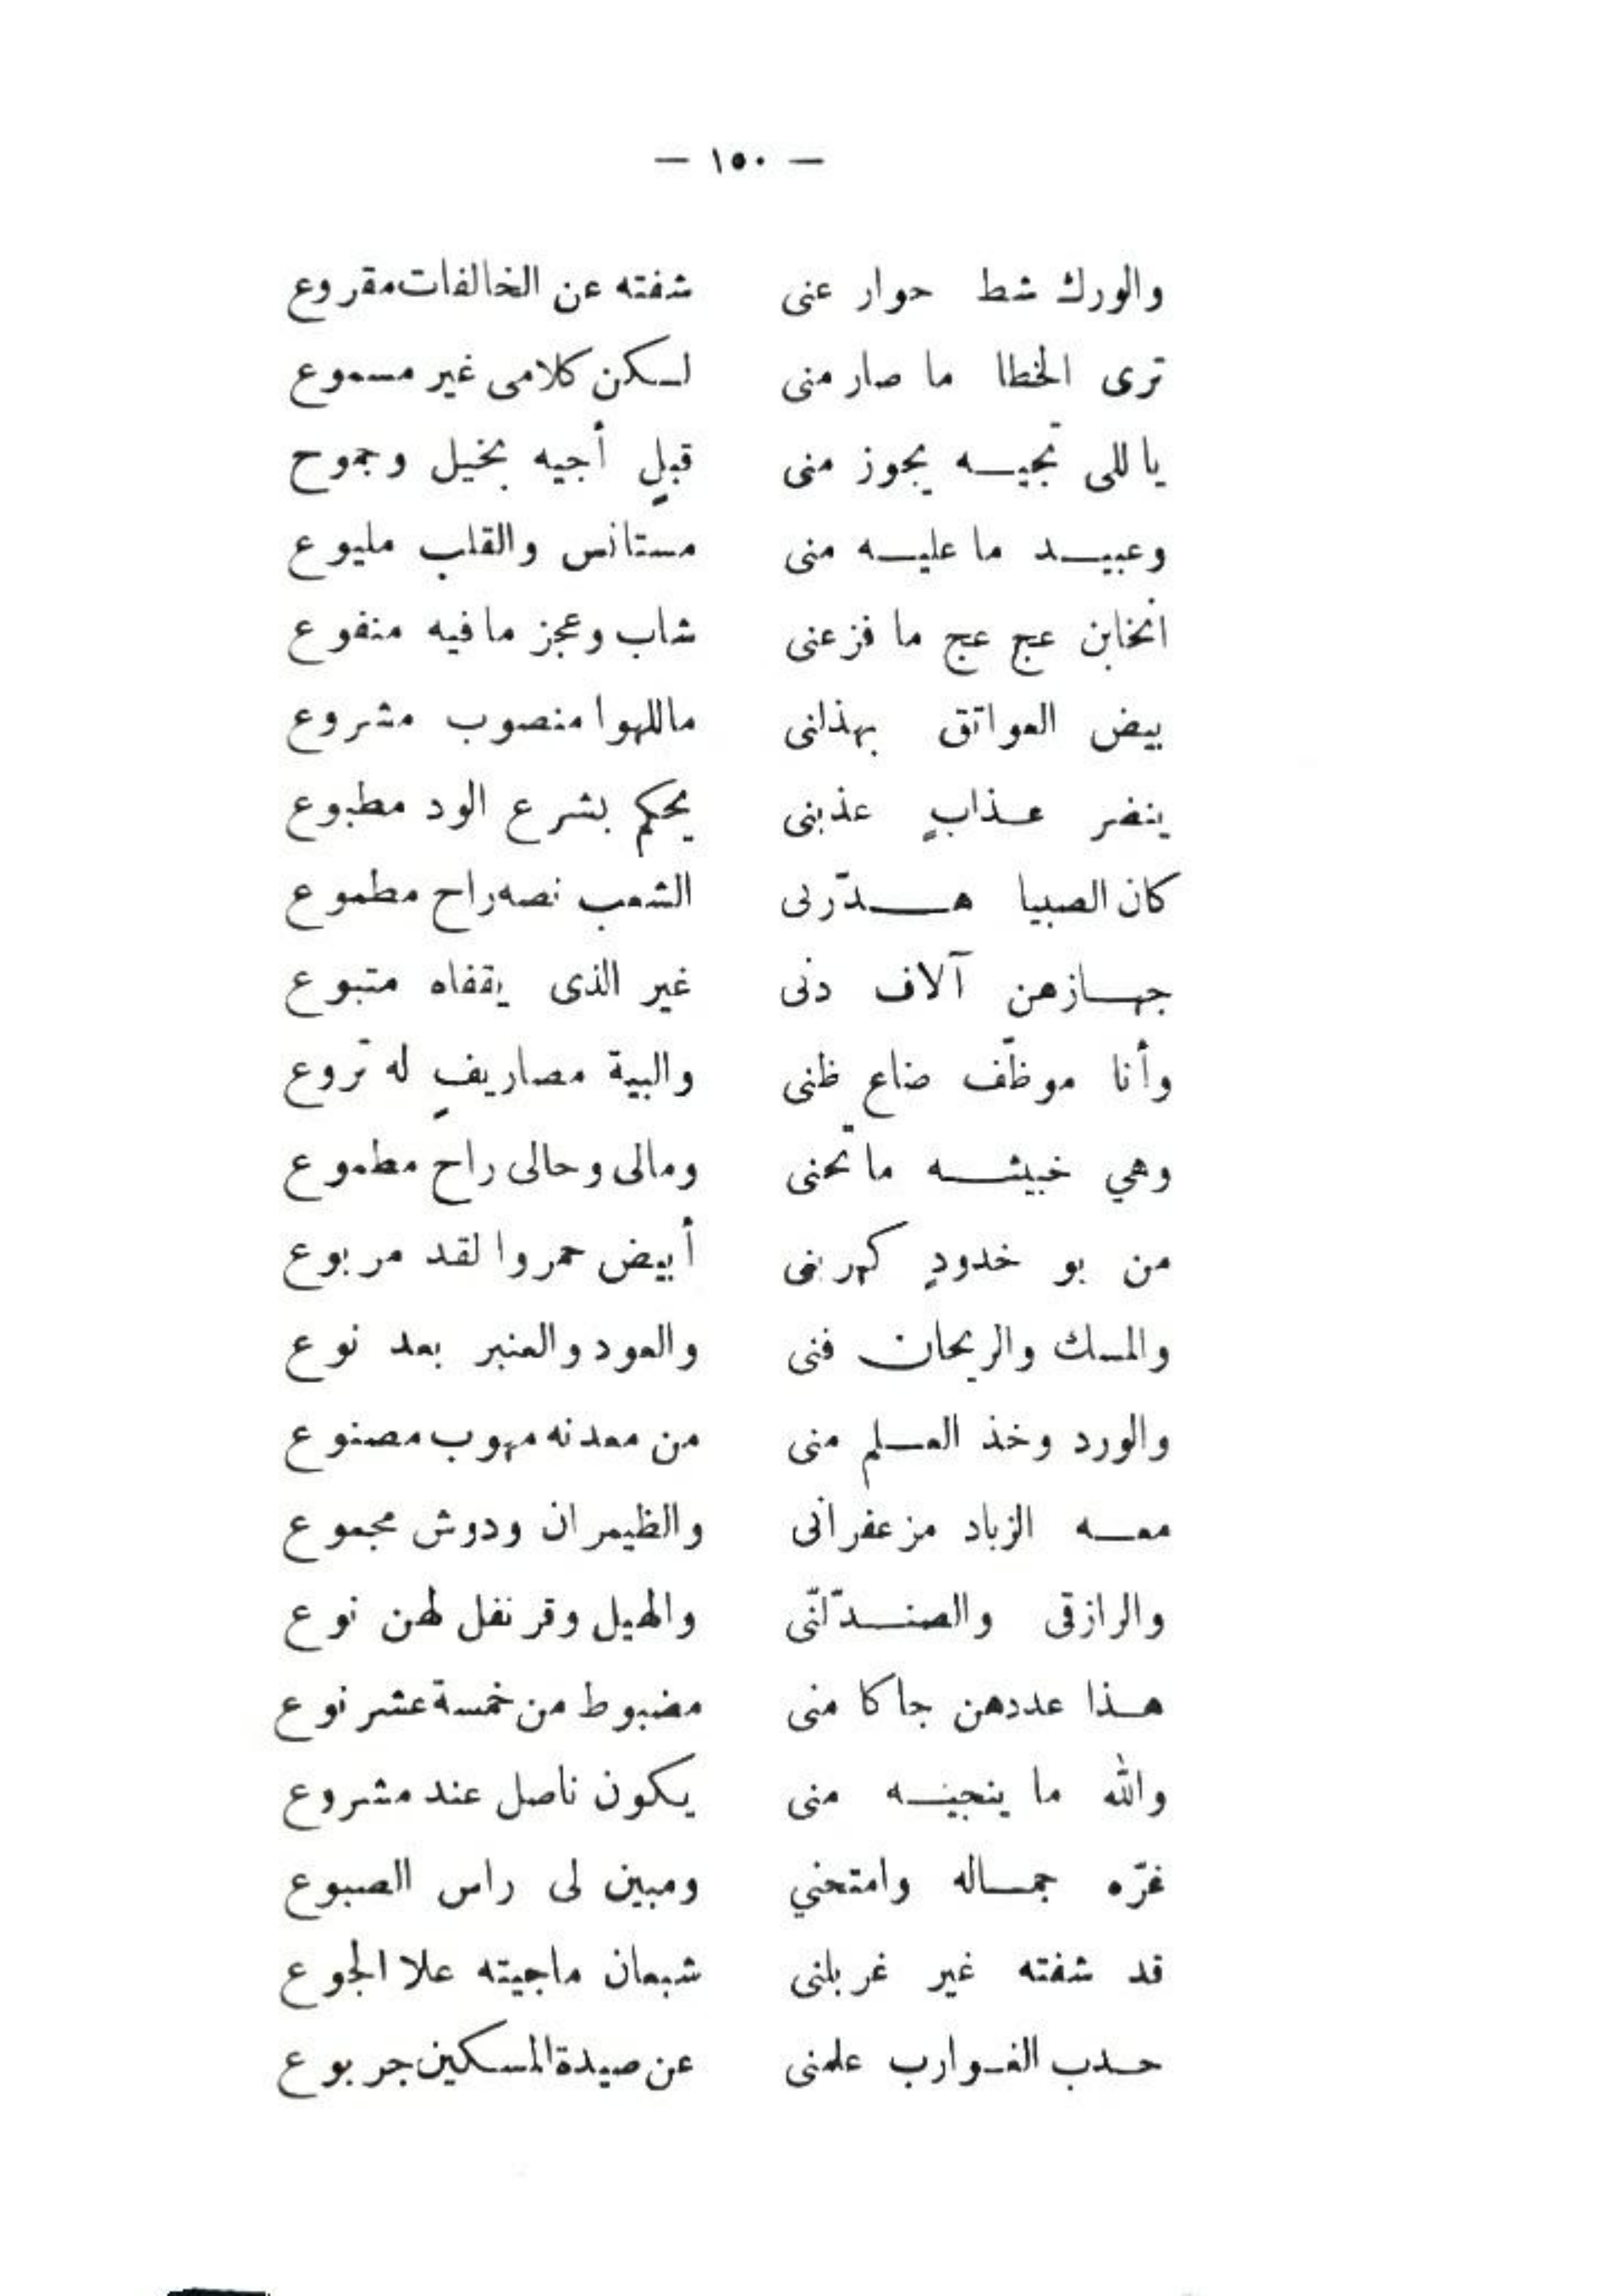 — ١٥٠ —
والورك شط حوار عنى شفته عن الخالفات مقروع
ترى الخطا ما صار منى لكن كلامى غير مسموع
يا للى تجيه يجوز منى قبلٍ أجيه بخيل وجموح
وعبيد ما عليه منى مستانس والقلب مليوع
انخابن عج عج ما فزعنى شاب وعجز ما فيه منفوع
بيض العواتق بهذلنى ماللهوا منصوب مشروع
ينضر عذابٍ عذبنى يحكم بشرع الود مطبوع
كان الصبيا هدّرلى الشعب نصه راح مطموع
جهازهن آلاف دنى غير الذى يقفاه متبوع
وأنا موظّف ضاع ظنى والبية مصاريفٍ له تروع
وهي خبيثه ما تحنى ومالى وحالى راح مطموع
من بو خدودٍ كهربنى أبيض حمروا لقد مربوع
والمسك والريحان فنى والعود والعنبر بعد نوع
والورد وخذ العلم منى من معدنه مهوب مصنوع
معه الزباد مزعفرانى والظيمران ودوش مجموع
والرازقى والصندّلنّى والهيل وقرنفل لهن نوع
هذا عددهن جاكا منى مضبوط من خمسة عشر نوع
والله ما ينجيه منى يكون ناصل عند مشروع
غرّه جماله وامتحني ومبين لى راس الصبوع
قد شفته غير غربلنى شبعان ماجيته علا الجوع
حدب الغوارب علمنى عن صيدة المسكين جربوع